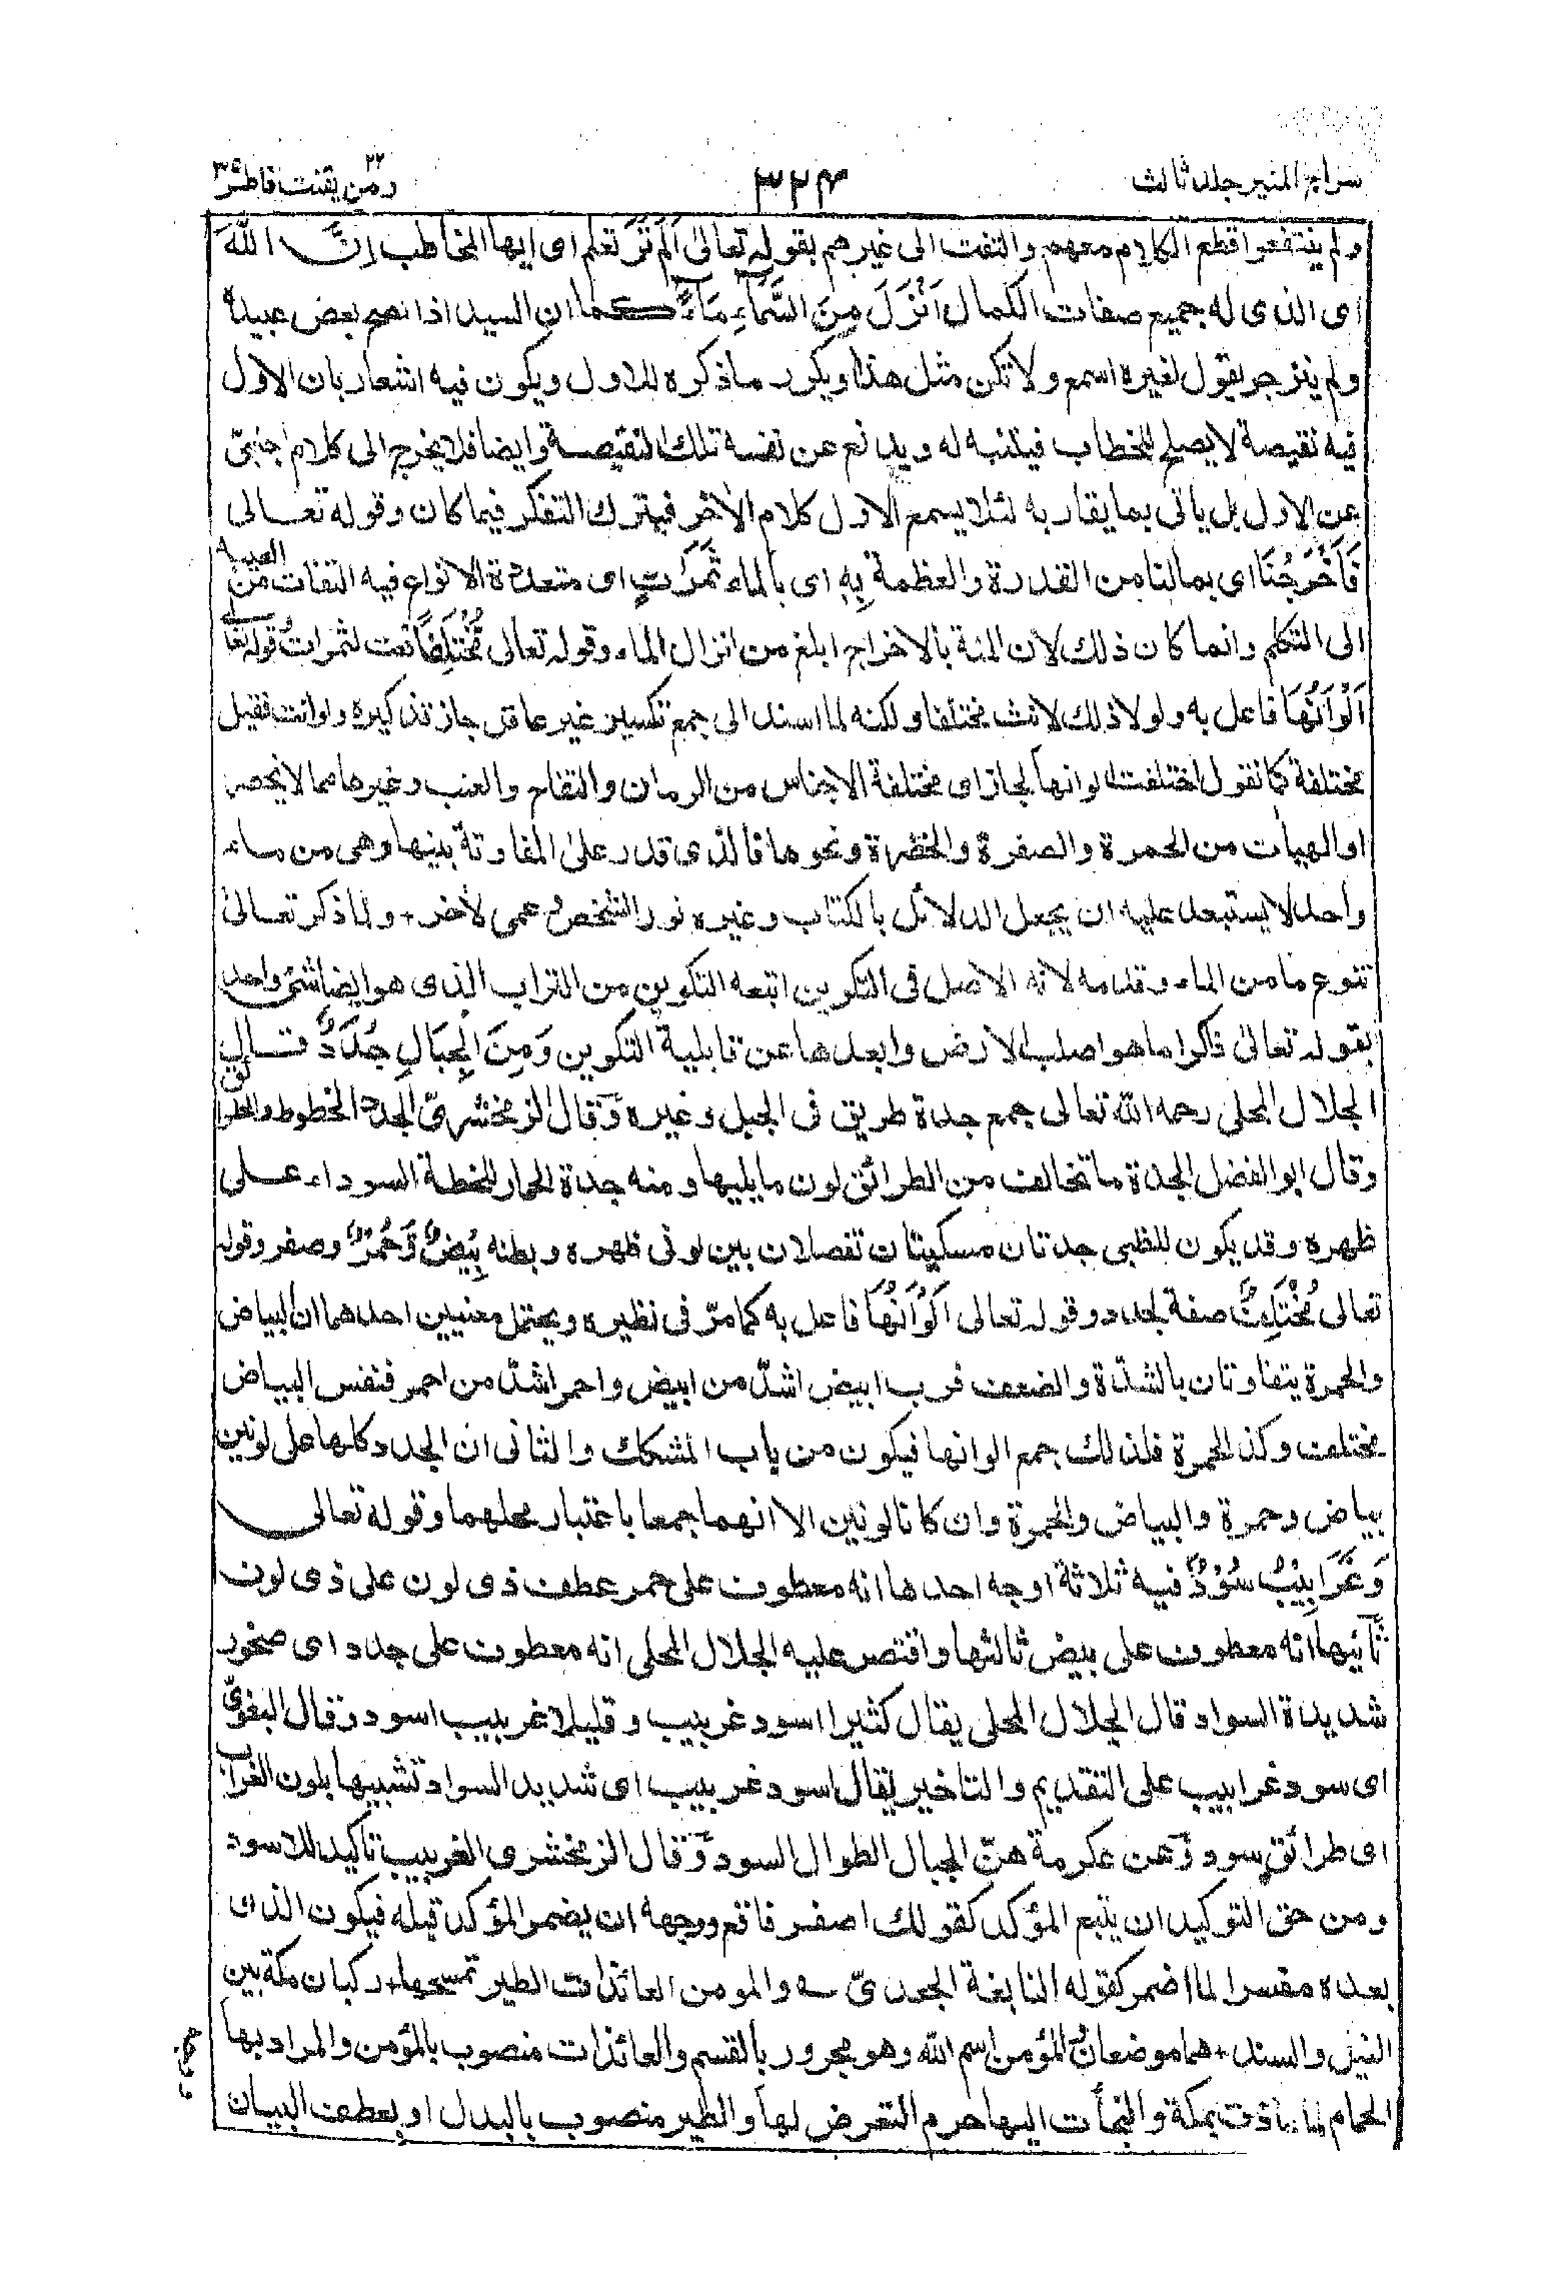 سراج المنير جلد ثالث
۳۲۴
ومن يقنت ۲۲ فاطر ۳۵
ولم ينتفعوا قطع الكلام معهم والتفت الى غيرهم بقوله تعالى اَلَمْ تَرَ تعلم اى ايها المخاطب اِنَّ اللّٰهَ
اى الذى له جميع صفات الكمال اَنْزَلَ مِنَ السَّمَآءِ مَآءً كما ان السيد اذا نصح بعض عبيده
ولم ينزجر يقول لغيره اسمع ولا تكن مثل هذا ويكرر ما ذكره للاول ويكون فيه اشعار بان الاول
فيه نقيصة لا يصلح للخطاب فيتنبه له ويدافع عن نفسه تلك النقيصة وايضا فلا يخرج الى كلام اجنبىّ
عن الاول بل ياتى بما يقاربه لئلا يسمع الاول كلام الآخر فيترك التفكر فيما كان وقوله تعالى
فَاَخْرَجْنَا اى بما لنا من القدرة والعظمة بِهٖ اى بالماء ثَمَرٰتٍ اى متعددة الانواع فيه التفات من الغيبة
الى التكلم وانما كان ذلك لان المنة بالاخراج ابلغ من انزال الماء وقوله تعالى مُّخْتَلِفًا نعت لثمرات وقوله تعالى
اَلْوَانُهَا فاعل به ولولا ذلك لانث مختلفا ولكنه لما اسند الى جمع تكسير غير عاقل جاز تذكيره ولو انث فقيل
مختلفة كما تقول اختلفت الوانها لجاز اى مختلفة الاجناس من الرمان والتفاح والعنب وغيرها مما لا يحصر
او الهيآت من الحمرة والصفرة والخضرة ونحوها فالذى قدر على المفاوتة بينها وهى من ماء
واحد لا يستبعد عليه ان يجعل الدلائل بالكتاب وغيره نورا لشخص وعمى لآخر + ولما ذكر تعالى
تنوع ما من الماء وقدمه لانه الاصل فى التكوين اتبعه التكوين من التراب الذى هو ايضا شئ واحد
بقوله تعالى ذاكرا ما هو اصلب الارض وابعدها عن قابلية التكوين وَمِنَ الْجِبَالِ جُدَدٌ قال
الجلال المحلى رحمه الله تعالى جمع جدة طريق فى الجبل وغيره وقال الزمخشرىّ الجدد الخطوط والطرائق
وقال ابو الفضل الجدة ما تخالف من الطرائق لون ما يليها ومنه جدة الحمار للخطة السوداء على
ظهره وقد يكون للظبى جدتان مسكيتان تفصلان بين لونى ظهره وبطنه بِيْضٌ وَّحُمْرٌ وصفر وقوله
تعالى مُّخْتَلِفٌ صفة لجدد وقوله تعالى اَلْوَانُهَا فاعل به كما مرّ فى نظيره ويحتمل معنيين احدهما ان البياض
والحمرة يتفاوتان بالشدّة والضعف فرب ابيض اشدّ من ابيض واحمر اشدّ من احمر فنفس البياض
مختلف وكذا الحمرة فلذلك جمع الوانها فيكون من باب المشكك والثانى ان الجدد كلها على لونين
بياض وحمرة والبياض والحمرة وان كانا لونين الا انهما جمعا باعتبار محلهما وقوله تعالى
وَغَرَابِيْبُ سُوْدٌ فيه ثلاثة اوجه احدها انه معطوف على حمر عطف ذى لون على ذى لون
ثانيها انه معطوف على بيض ثالثها واقتصر عليه الجلال المحلى انه معطوف على جدد اى صخور
شديدة السواد قال الجلال المحلى يقال كثيرا اسود غربيب وقليلا غربيب اسود وقال البغوىّ
اى سود غرابيب على التقديم والتاخير يقال اسود غربيب اى شديد السواد تشبيها بلون الغراب
اى طرائق سود وعن عكرمة هنّ الجبال الطوال السود وقال الزمخشرى الغربيب تاكيد للاسود
ومن حق التوكيد ان يتبع المؤكد كقولك اصفر فاقع ووجهه ان يضمر المؤكد قبله فيكون الذى
بعده مفسرا لما اضمر كقوله النابغة الجعدىّ ؎ والمومن العائذات الطير تمسحها + ركبان مكة بين
الغيل والسند + هما موضعان المؤمن اسم الله وهو مجرور بالقسم والعائذات منصوب بالمؤمن والمراد بها
الحمام لما عاذت بمكة والتجأت اليها حرم التعرض لها والطير منصوب بالبدل او بعطف البيان